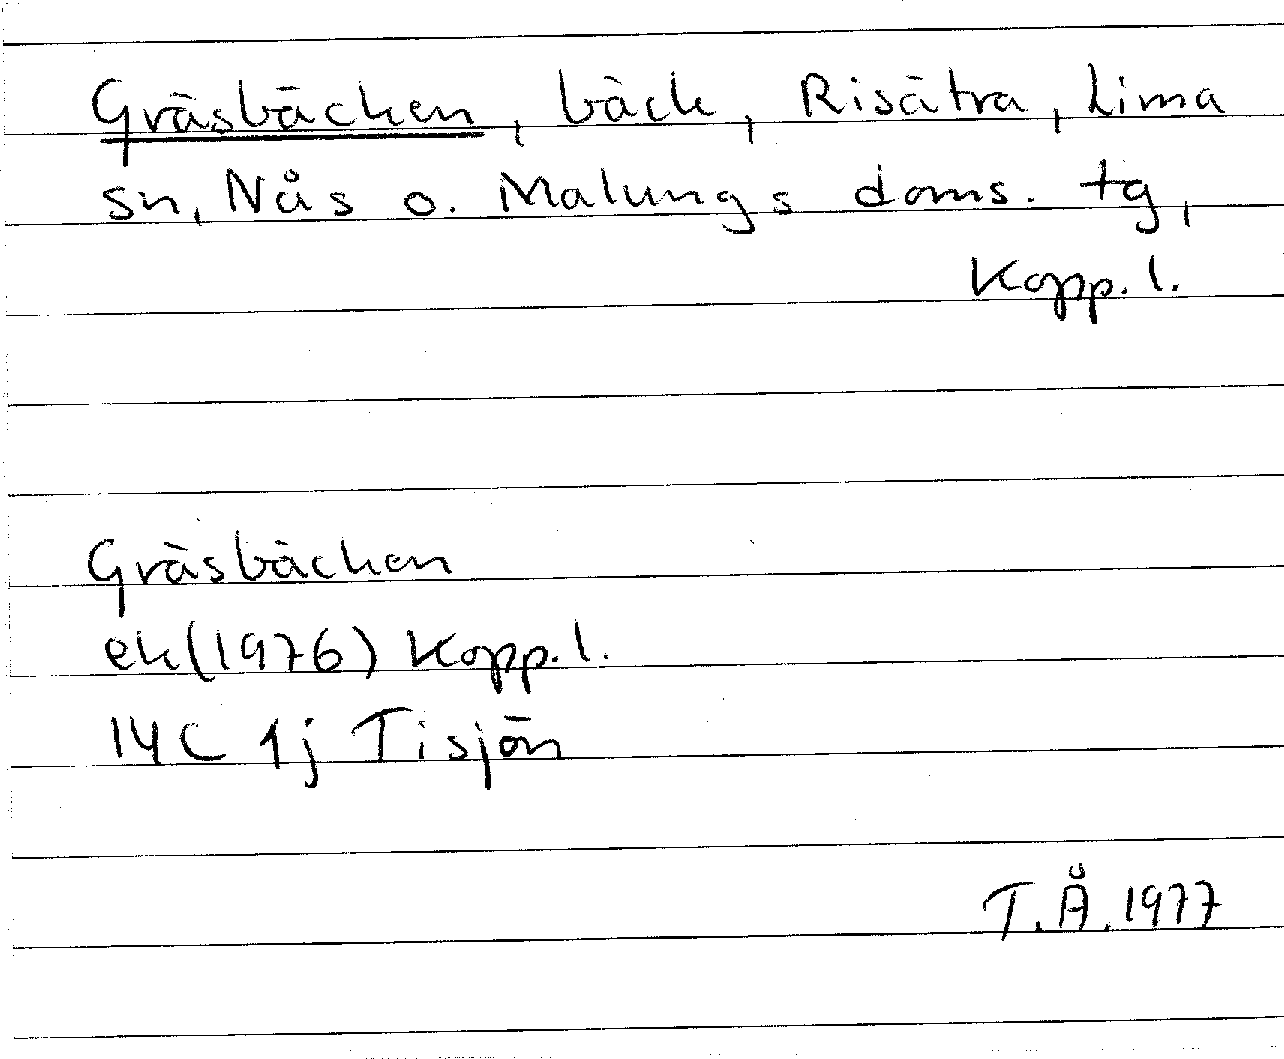 Gräsbäcken, bäck, Risätra, Lima
sn, Nås o. Malungs doms. tg,
Kopp. l.
Gräsbäcken
ek(1976) Kopp. l.
14C 1j Tisjön
T.Å. 1977